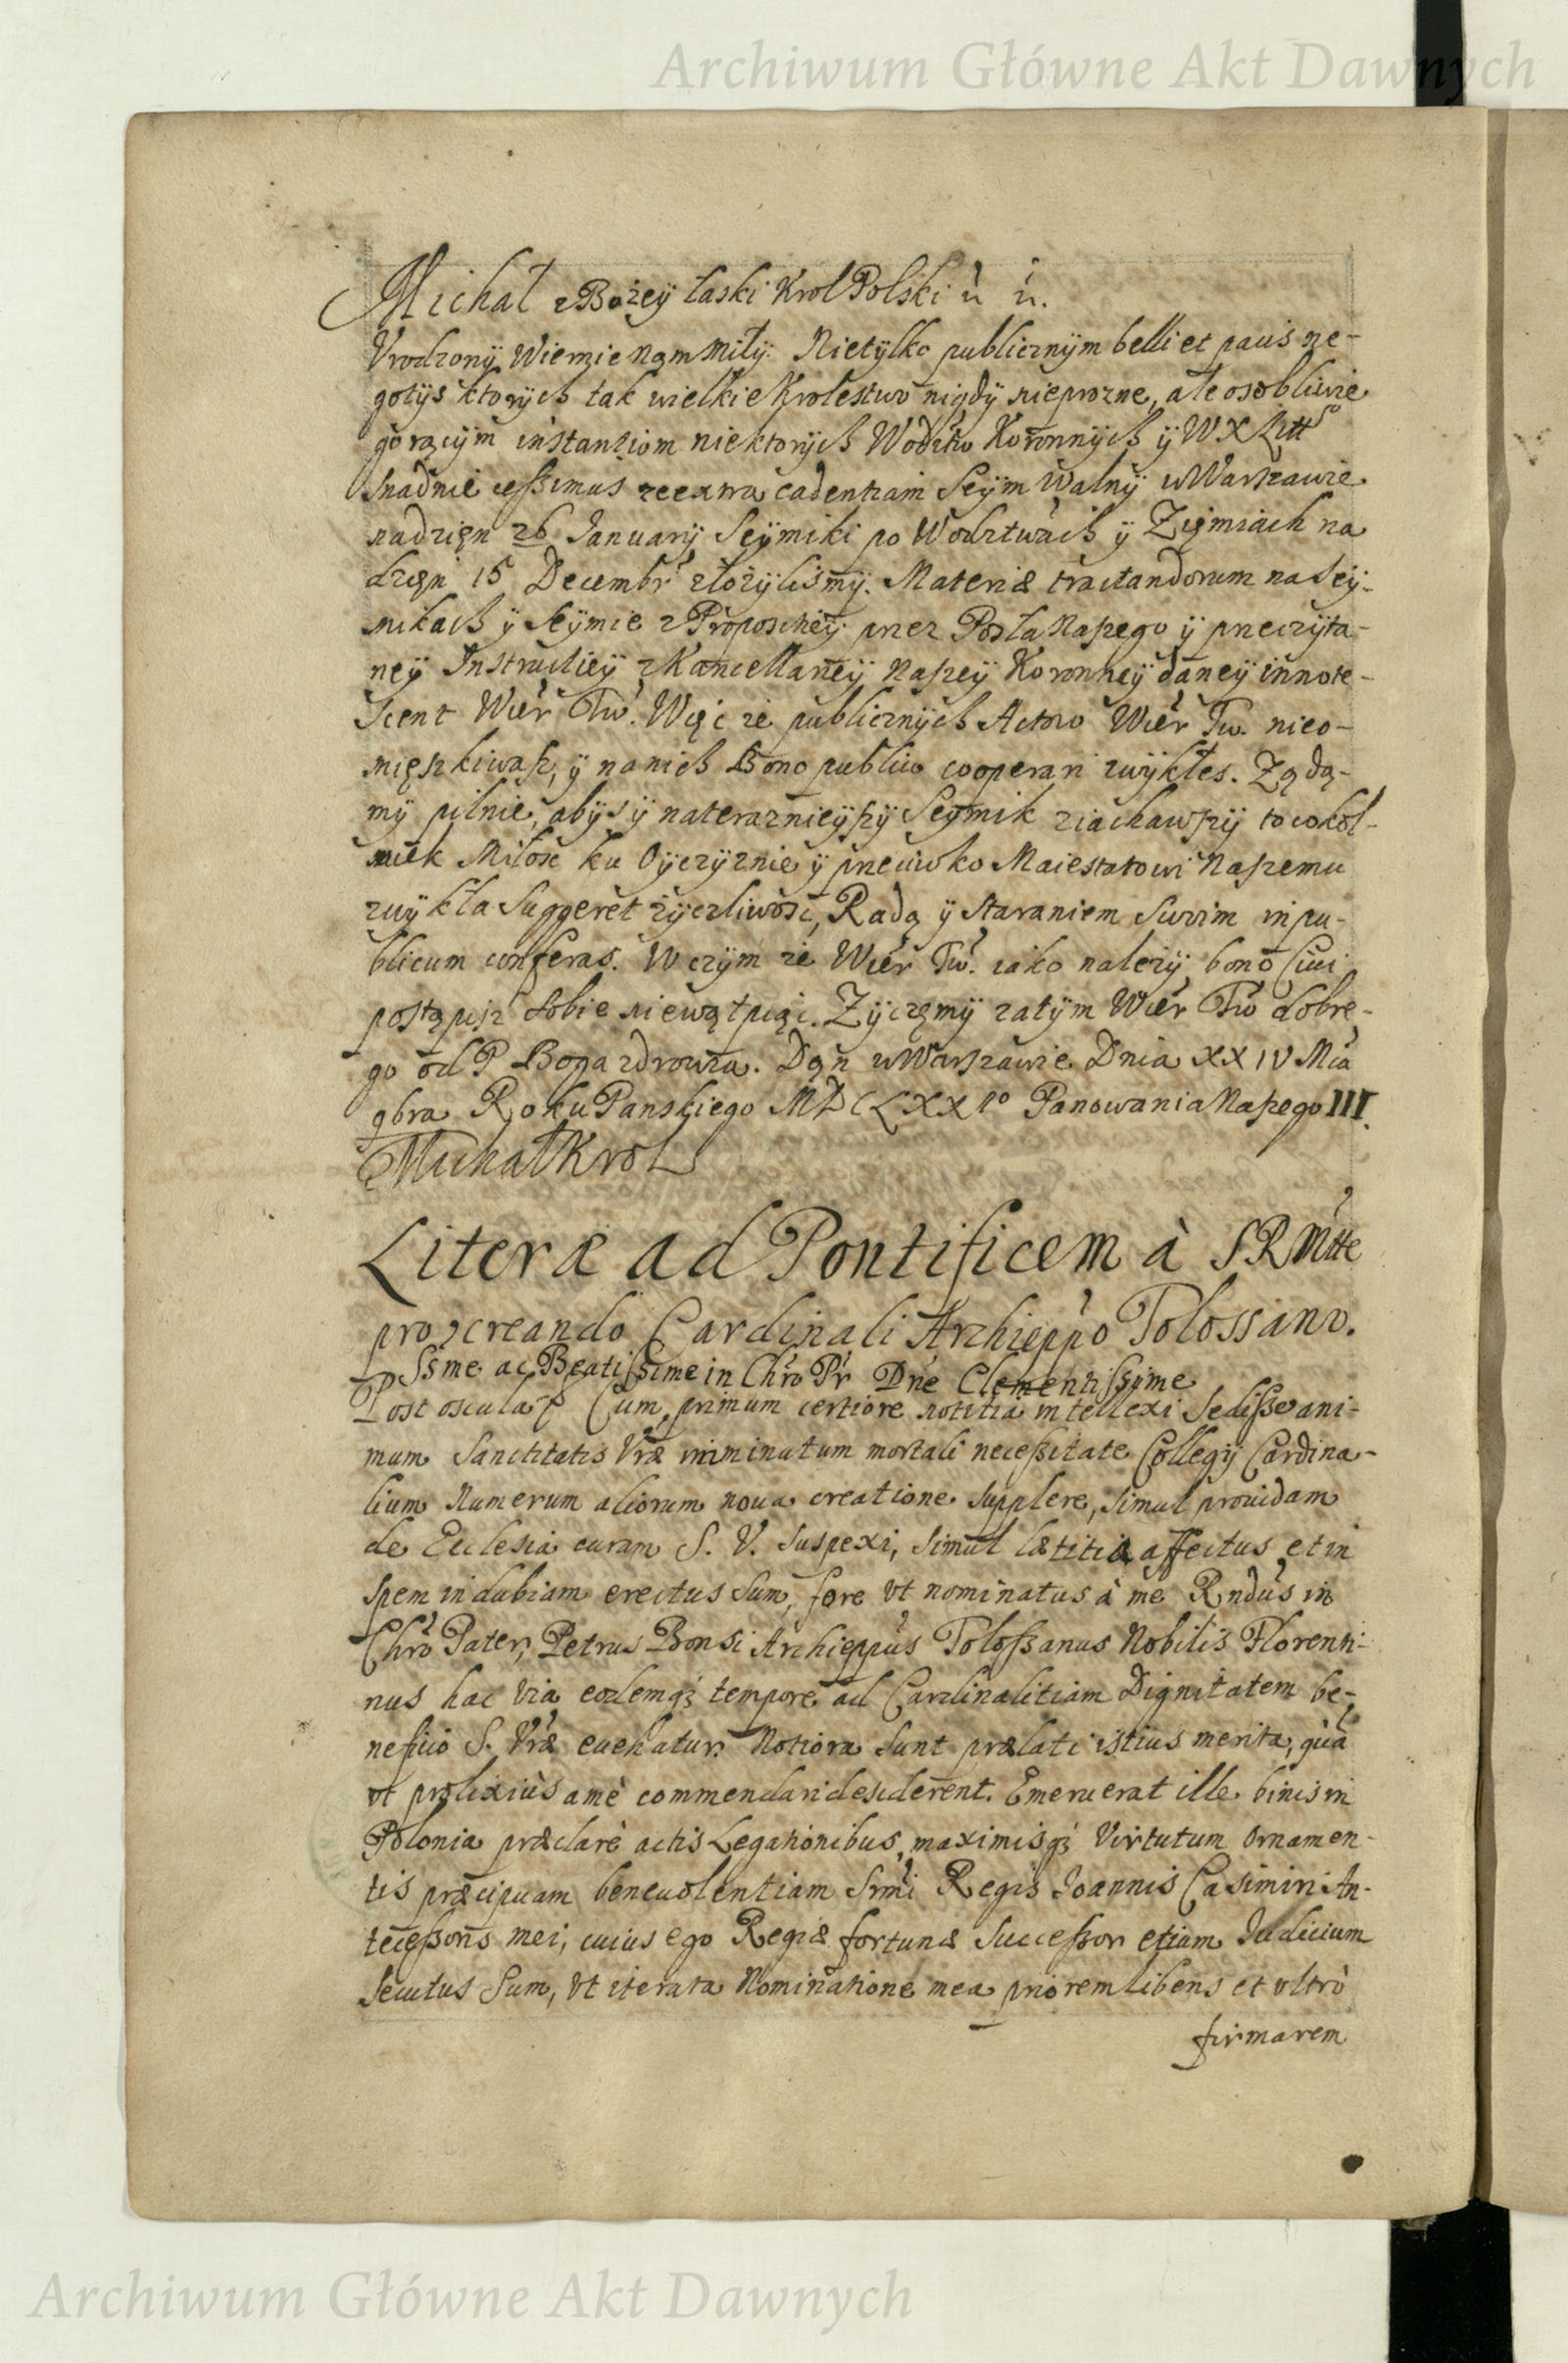 Archiwum Główne Akt Dawnych
Michał z Bozey łaski Krol Polski ù ù.
Vrodzony Wiernie nam Miły. Nietylko publicznym belli et pacis ne-
gotijs ktorych tak wielkie Krolestwo nigdy nieprozne, ale osobliwie
gorącym instantiom niektorych Wodztw Koronnych y W X Litt
snadnie cessimus ze extra cadentiam Seym Walny w Warszawie
na dzięn 26 January Seymiki po Wodztwach y Ziemiach na
dzięn 15 Decembr złozylismy. Materiæ tractandorum na Sey-
mikach y Seymie z Propositiey przez Posła Naszego y przeczyta-
ney Instructiey z Kancellariey Naszey Koronney daney innote-
scent Wier Tw. Więc ze publicznych Actow Wier Tw. nieo-
mięszkiwasz, y na nich Bono publico cooperari zwykłes. Ządą-
my pilnie, abys y na terazniejszy Seymik ziachawszy to cokol-
wiek Miłosc ku Oyczyznie y przeciwko Maiestatowi Naszemu
zwykła suggeret zyczliwosc, Radą y staraniem swoim in pu-
blicum conferas. W czym ze Wier Tw. iako nalezy bono Civi
postąpisz sobie niewątpiąc. Zyczęmy zatym Wier Tw dobre-
go od P Boga zdrowia. Dąn w Warszawie Dnia XXIV Mca
9bra Roku Panskiego MDCLXXI° Panowania Naszego III.
Michał Krol
Literæ ad Pontificem à SRMtte
pro creando Cardinali Archieppo Tolossano.
Ssme ac Beatissime in Chro Pr Dne Clementissime
Post oscula Cum primum certiore notitiâ intellexi Sedisse ani-
mum Sanctitatis Vræ imminutum mortali necessitate Collegij Cardina-
lium Numerum aliorum noua creatione supplere, simul prouidam
de Ecclesia curam S. V. suspexi, simul lætitia affectus et in
spem indubiam erectus sum, fore vt nominatus à me Rndus in
Chro Pater, Petrus Bonsi Archieppus Tolossanus Nobilis Florenti-
nus hac via eodemq; tempore ad Cardinalitiam Dignitatem be-
neficio S. Vræ euehatur. Notiora sunt prælati istius merita, quà
vt prolixiùs a mè commendari desiderent. Emeruerat ille binis in
Polonia præclarè actis Legationibus, maximisq; Virtutum Ornamen-
tis præcipuam beneuolentiam Srmi Regis Joannis Casimiri An-
tecessoris mei, cuius ego Regiæ fortunæ Successor etiam Judicium
secutus sum, vt iterata Nominatione mea priorem libens et vltrò
firmarem
Archiwum Główne Akt Dawnych